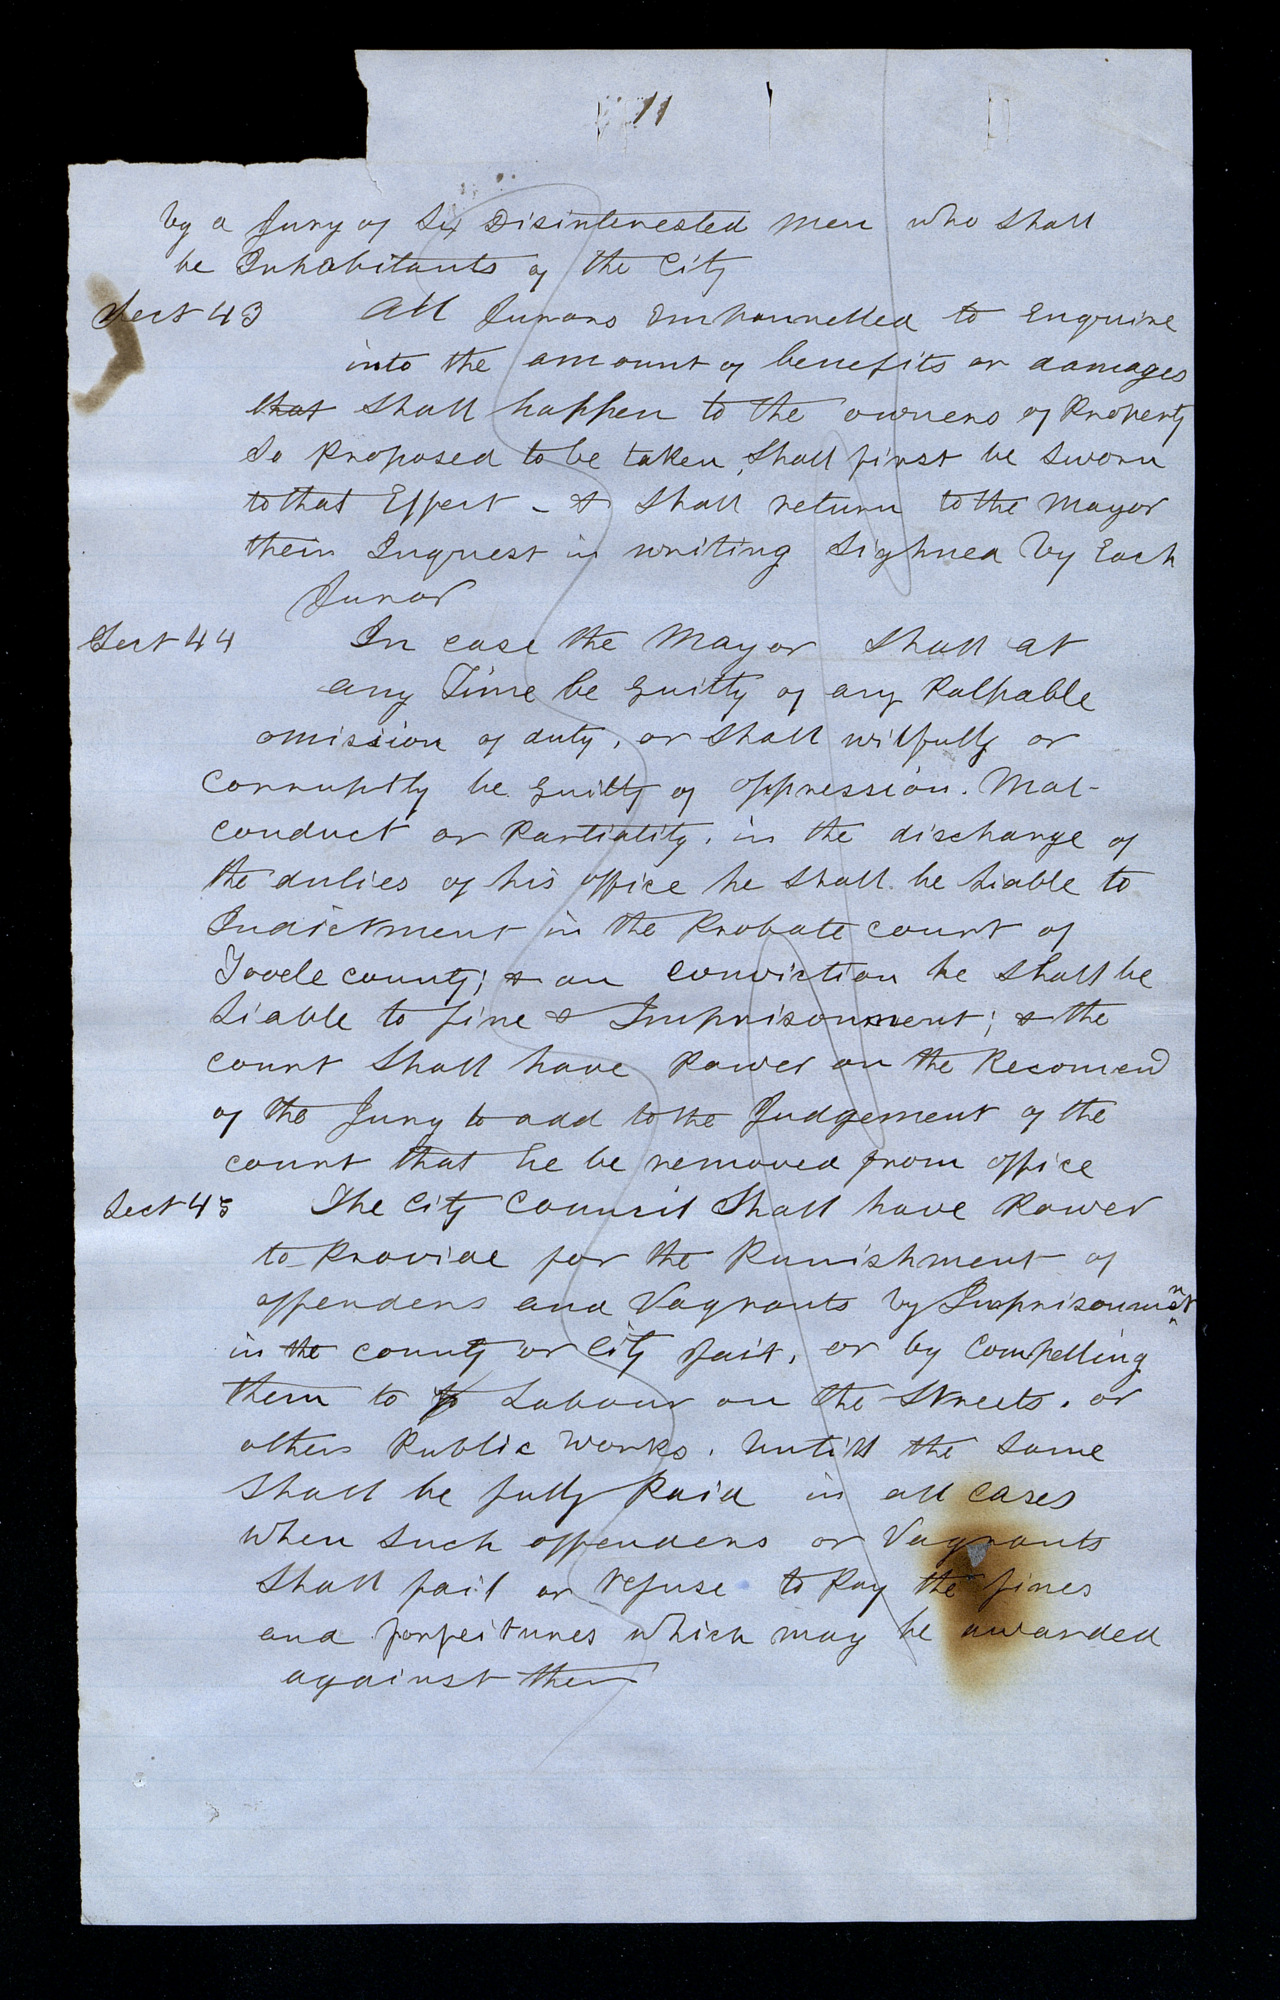 11
by a Jury of Six Disinterested men who shall
be Inhabitants of the City
Sect 43 All Jurors Empannelled to Enquire
into the amount of benefits or damages
that shall happen to the owners of Property
So Proposed to be taken, Shall first be Sworn
to that Effect - & Shall return to the Mayor
their Inquest in writing Sighned by Each
Juror
Sect 44 In case the Mayor Shall at
any Time be guilty of any Palpable
omission of duty, or shall wilfully or
corruptly be guilty of oppression. Mal-
conduct or Partiality, in the discharge of
the duties of his office he shall be Liable to
Indictment in the Probate court of
Tooele county; & on conviction he shall be
Liable to fine & Imprisonment; & the
court Shall have Power on the Recomend
of the Jury to add to the Judgement of the
court that he be removed from office
Sect 45 The City Council Shall have Power
to Provide for the Punishment of
offenders and Vagrants by Imprisonment
in the county or City Jail, or by Compelling
them to to Labour on the Streets, or
other Public Works, untill the Same
Shall be fully Paid in all cases
when Such offenders or Vagrants
Shall fail or refuse to Pay the fines
and forfeitures which may be awarded
against them